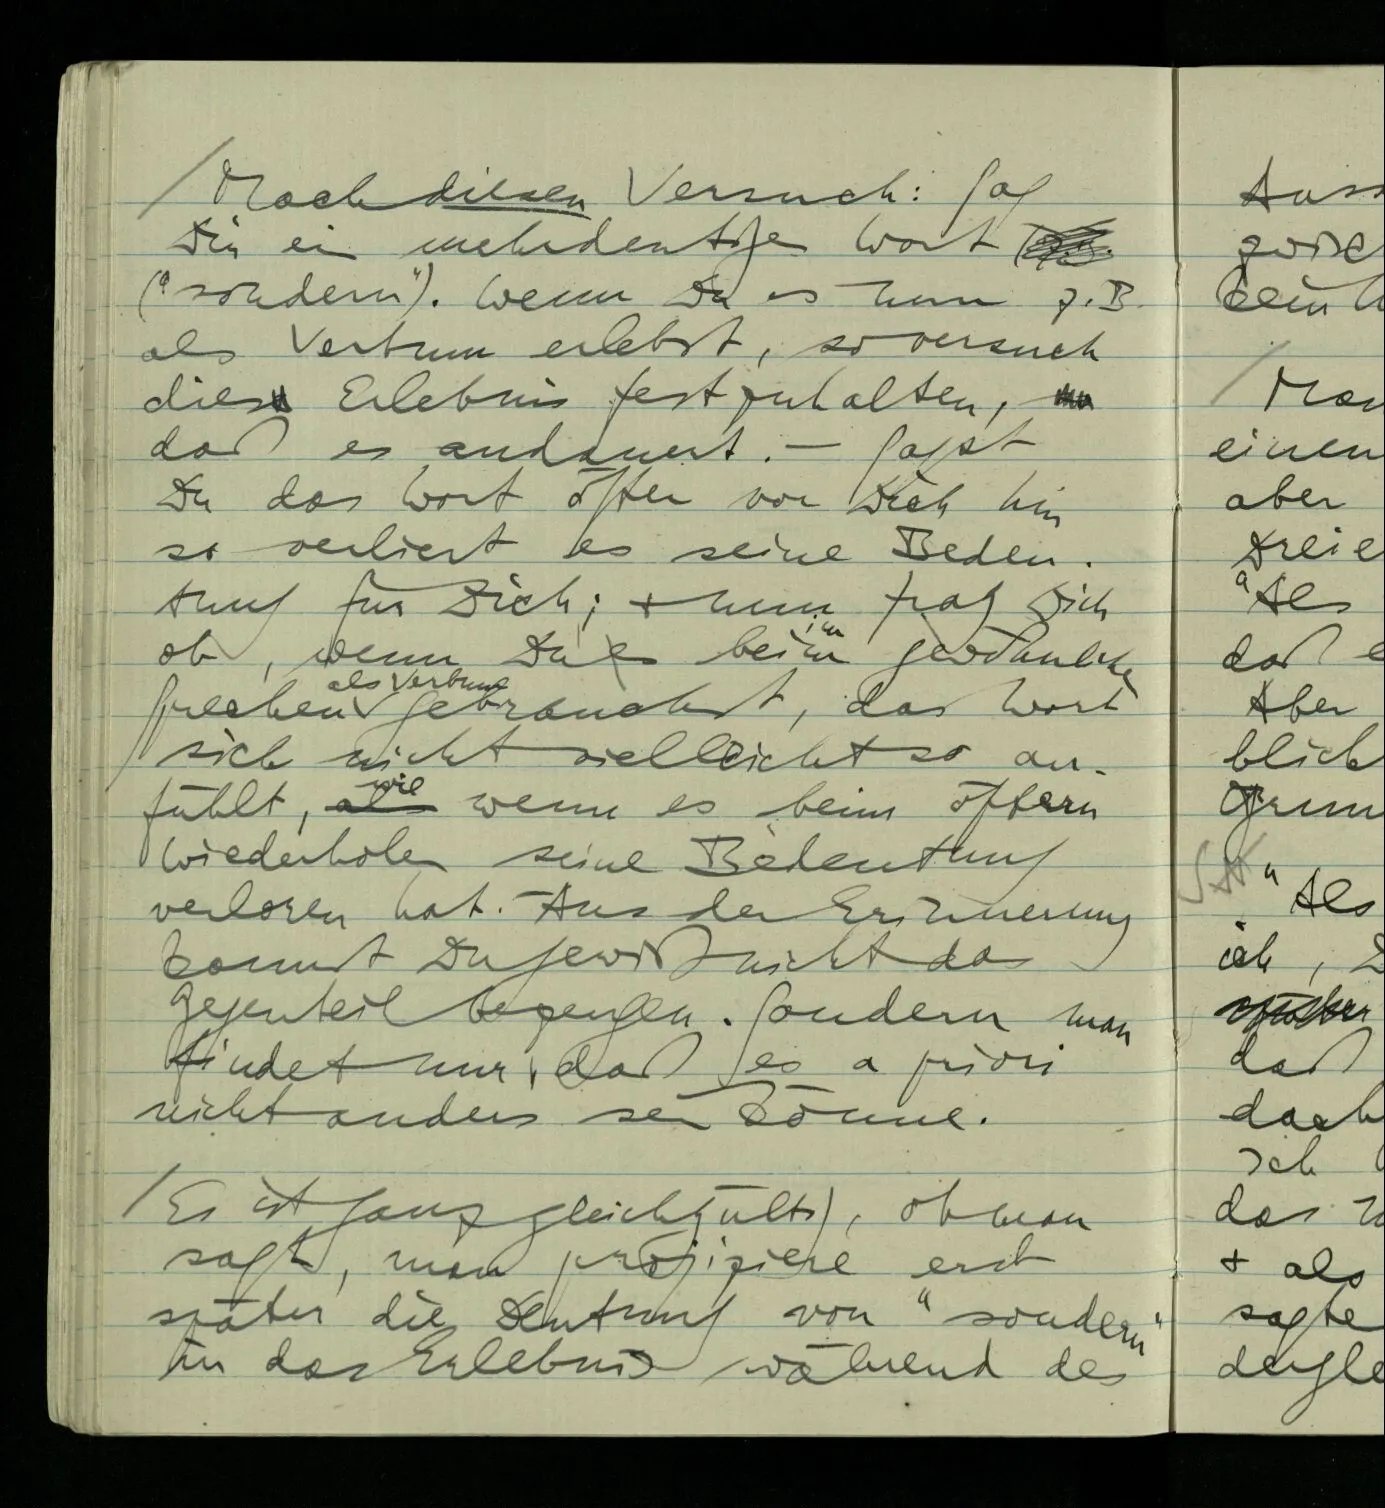 / Mach diesen Versuch: Sag
Dir ein mehrdeutiges Wort
("sondern"). Wenn Du es nun z.B.
als Verbum erlebst, so versuch
dies Erlebnis festzuhalten,
daß es andauert. – Sagst
Du das Wort öfter vor Dich hin
so verliert es seine Bedeu-
tung für Dich; & nun frag Dich
ob, wenn Du es beim im gewöhnlichen
Sprechen als Verbum gebrauchst, das Wort
sich nicht vielleicht so an-
fühlt, als wie wenn es beim öftern
Wiederholen seine Bedeutung
verloren hat. Aus der Erinnerung
kannst Du gewiß nicht das
Gegenteil bezeugen. Sondern man
findet nur, daß es a priori
nicht anders sein könne.
/ Es ist ganz gleichgültig, ob man
sagt, man projiziere erst
später die Deutung von "sondern"
in das Erlebnis während des
zwisc
/ Man
einen
aber
Dreie
"Als
daß e
Aber
blick
Grun
"Als
ich, D
daß
doch
ich
das
& als
sagte
dergle